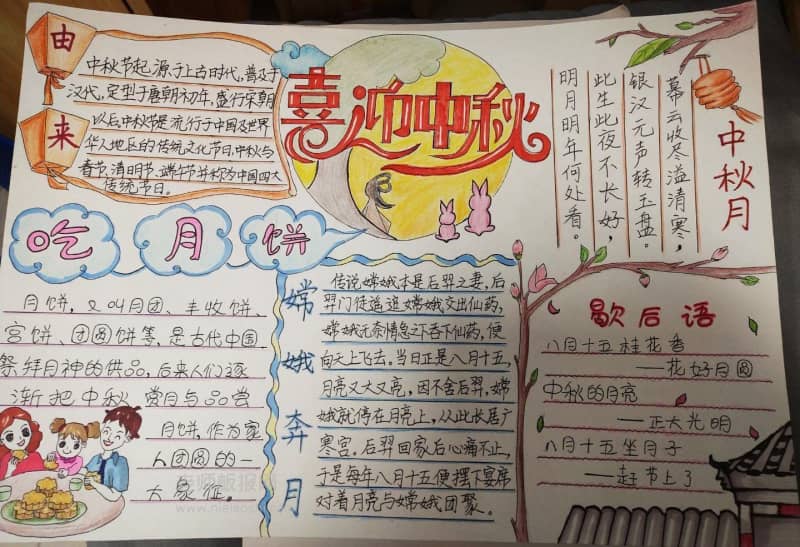 由来
中秋节起源于上古时代,普及于
汉代,定型于唐朝初年,盛行宋朝
以后,中秋节是流行于中国及世界
华人地区的传统文化节日,中秋与
春节、清明节、端午节并称为中国四大
传统节日。
喜迎中秋
中秋月
暮云收尽溢清寒,
银汉元声转玉盘。
此生此夜不长好,
明月明年何处看。
吃月饼
月饼,又叫月团、丰收饼、
宫饼、团圆饼等,是古代中国
祭拜月神的供品,后来人们逐
渐把中秋赏月与品尝
月饼,作为家
人团圆的一
大象征。
嫦娥奔月
传说嫦娥本是后羿之妻,后
羿门徒逼迫嫦娥交出仙药,
嫦娥无奈情急之下吞下仙药,便
向天上飞去。当日正是八月十五,
月亮又大又亮,因不舍后羿,嫦
娥就停在月亮上,从此长居广
寒宫。后羿回家后心痛不止,
于是每年八月十五便摆下宴席
对着月亮与嫦娥团聚。
歇后语
八月十五桂花香
——花好月圆
中秋的月亮
——正大光明
八月十五坐月子
——赶节上了